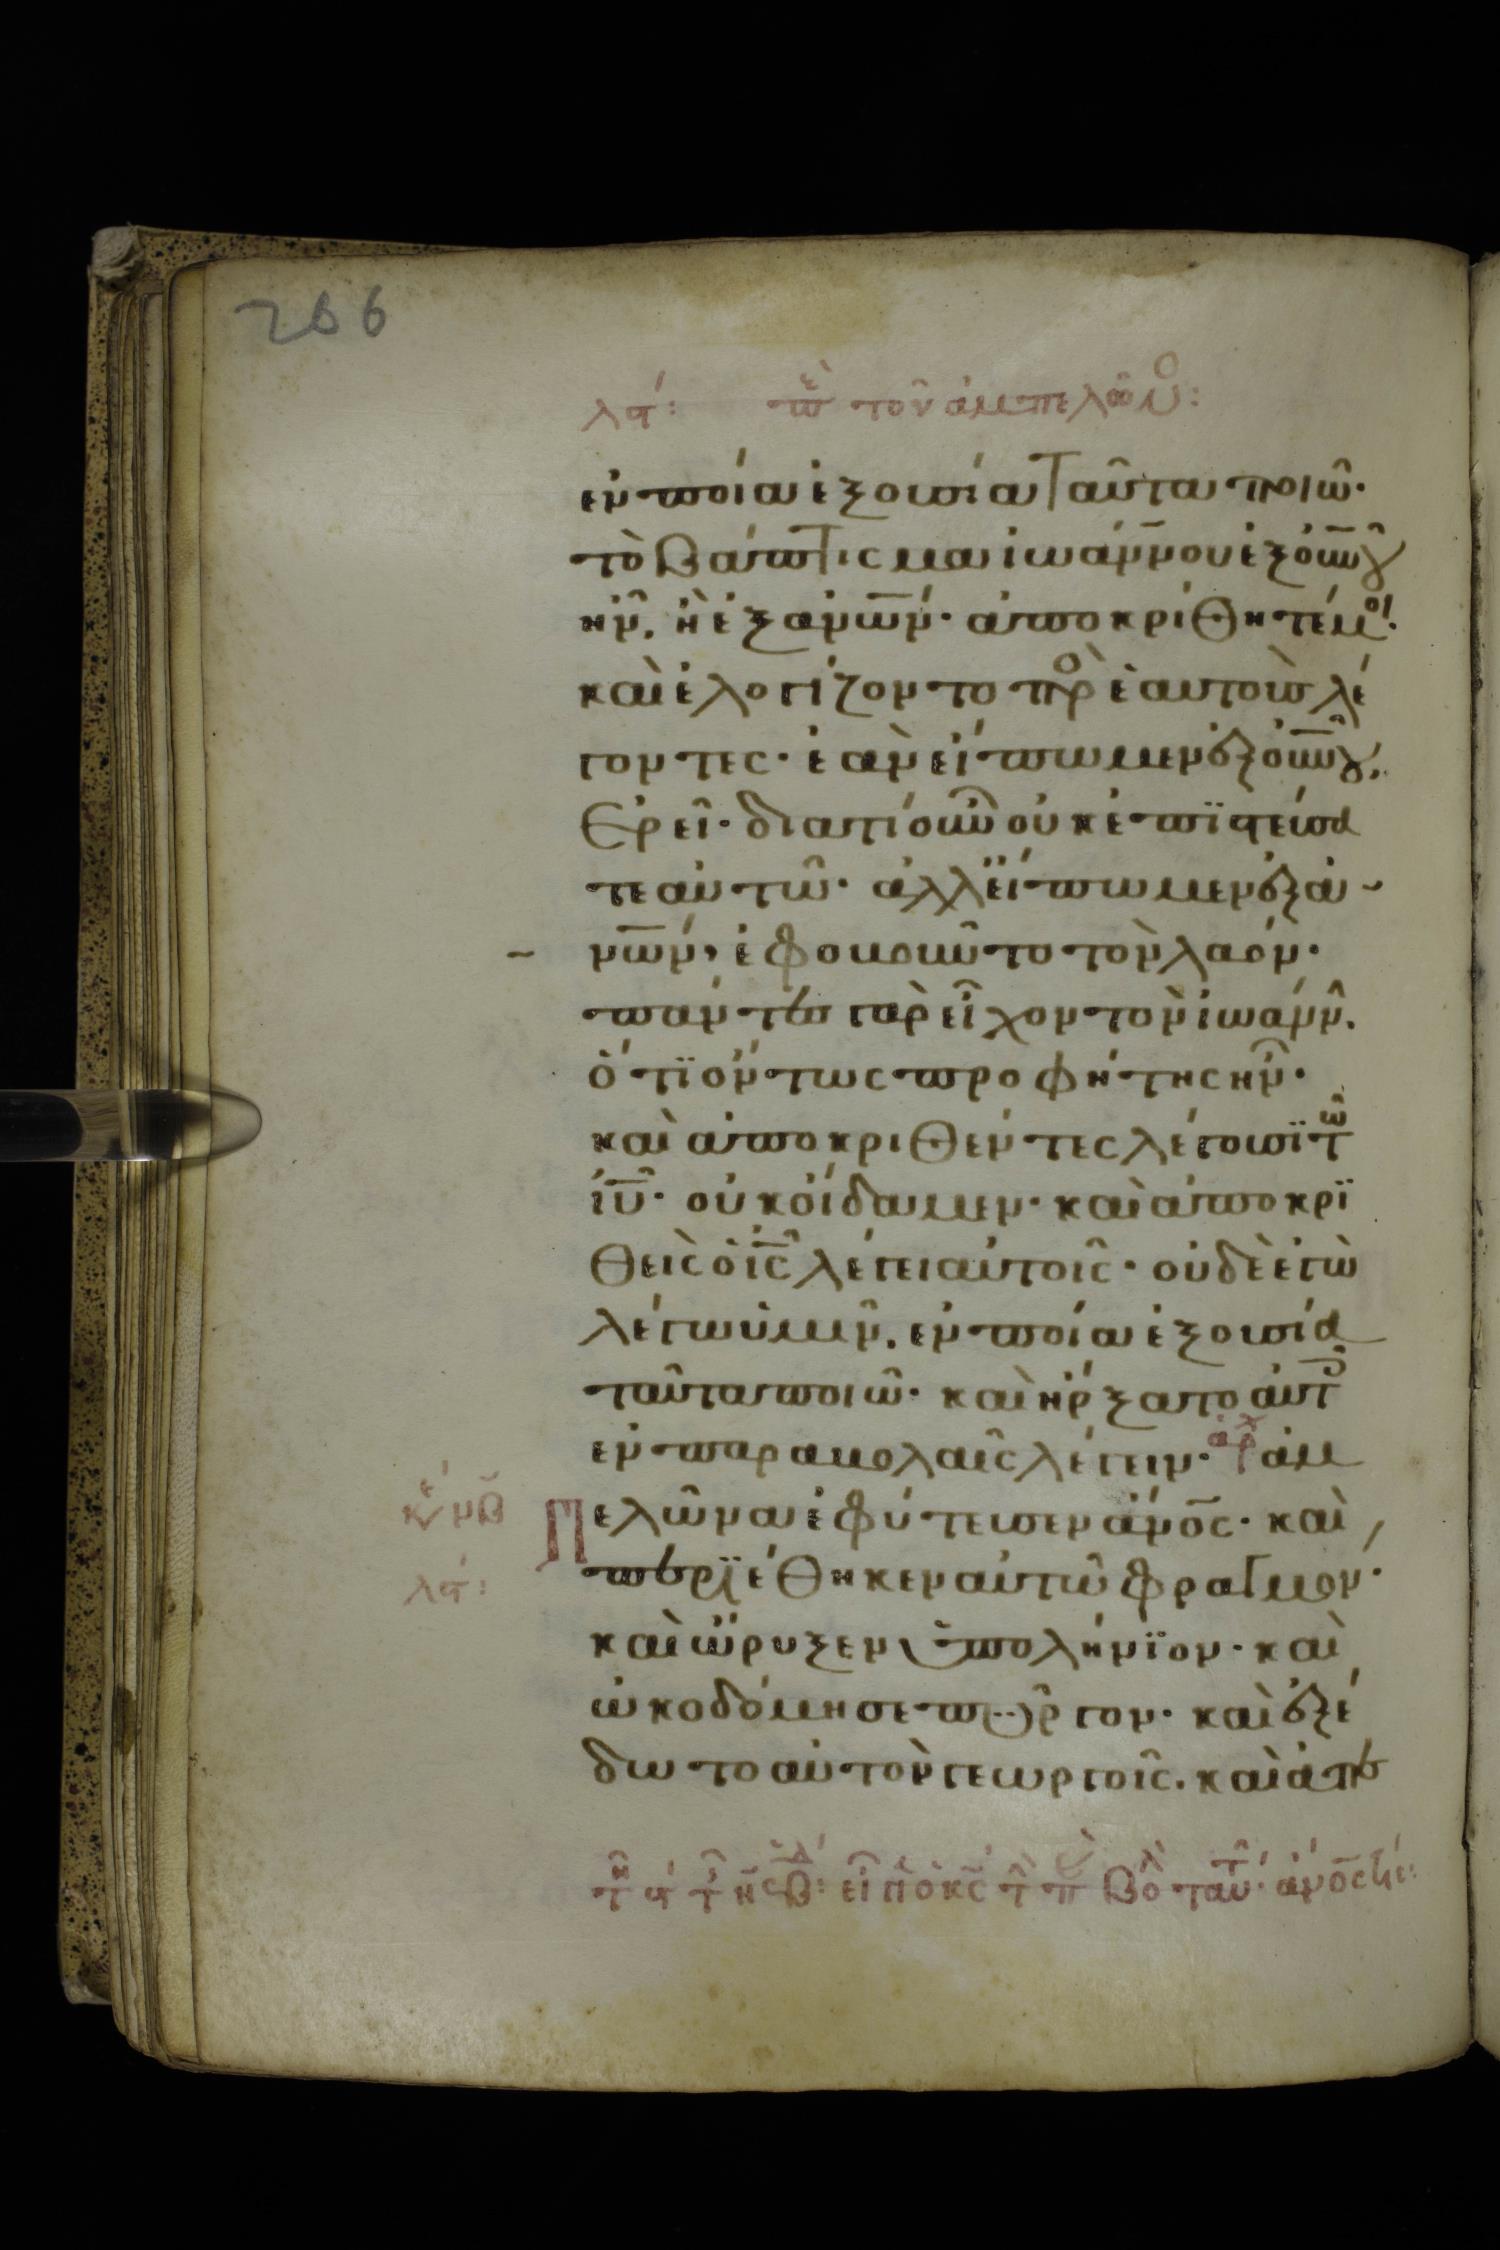 266
λϛ´: πε τοῦ ἀμπελῶ
ἐν ποία ἐξουσία ταῦτα ποιῶ·
τὸ βάπτισμα ἰωάννου ἐξ οὐνου
ἦν, ἢ ἐξ ἀνων· ἀποκρίθητέ μοι·
καὶ ἐλογίζοντο πρὸ ἑαυτοὺς λέ
γοντες· ἐὰν εἴπωμεν ἐξ οὐνου,
ἐρεῖ· διατί οὖν οὐκ ἐπϊστεύσα
τε αὐτῶ· ἀλλ εἴπωμεν ἐξ ἀ
νων, ἐφοβοῦντο τὸν λαόν·
πάντες γὰρ εἶχον τὸν ἰωάνν.
ὅτϊ ὄντως προφήτης ἦν·
καὶ ἀποκριθέντες λέγουσϊ τῶ
ιυ· οὐκ οἴδαμεν· καὶ ἀποκρϊ
θεὶς ὁ ις λέγει αὐτοῖς· οὐδὲ ἐγὼ
λέγω ὑμῖν, ἐν ποία ἐξουσία
ταῦτα ποιῶ· καὶ ἤρξατο αὐτ
ἐν παραβολαῖς λέγειν· ἀρχ ἀμ
πελῶνα ἐφύτευσεν ἄνος· καὶ
κε νβ
περϊέθηκεν αὐτῶ φραγμόν·
λϛ´:
καὶ ὤρυξεν ὑπολήνϊον· καὶ
ὠκοδόμησε πύργον· καὶ ἐξέ
δωτο αὐτὸν γεωργοῖς. καὶ ἀπε
εἶπ ὁ κς τ π βο ταύτ· ἄνος